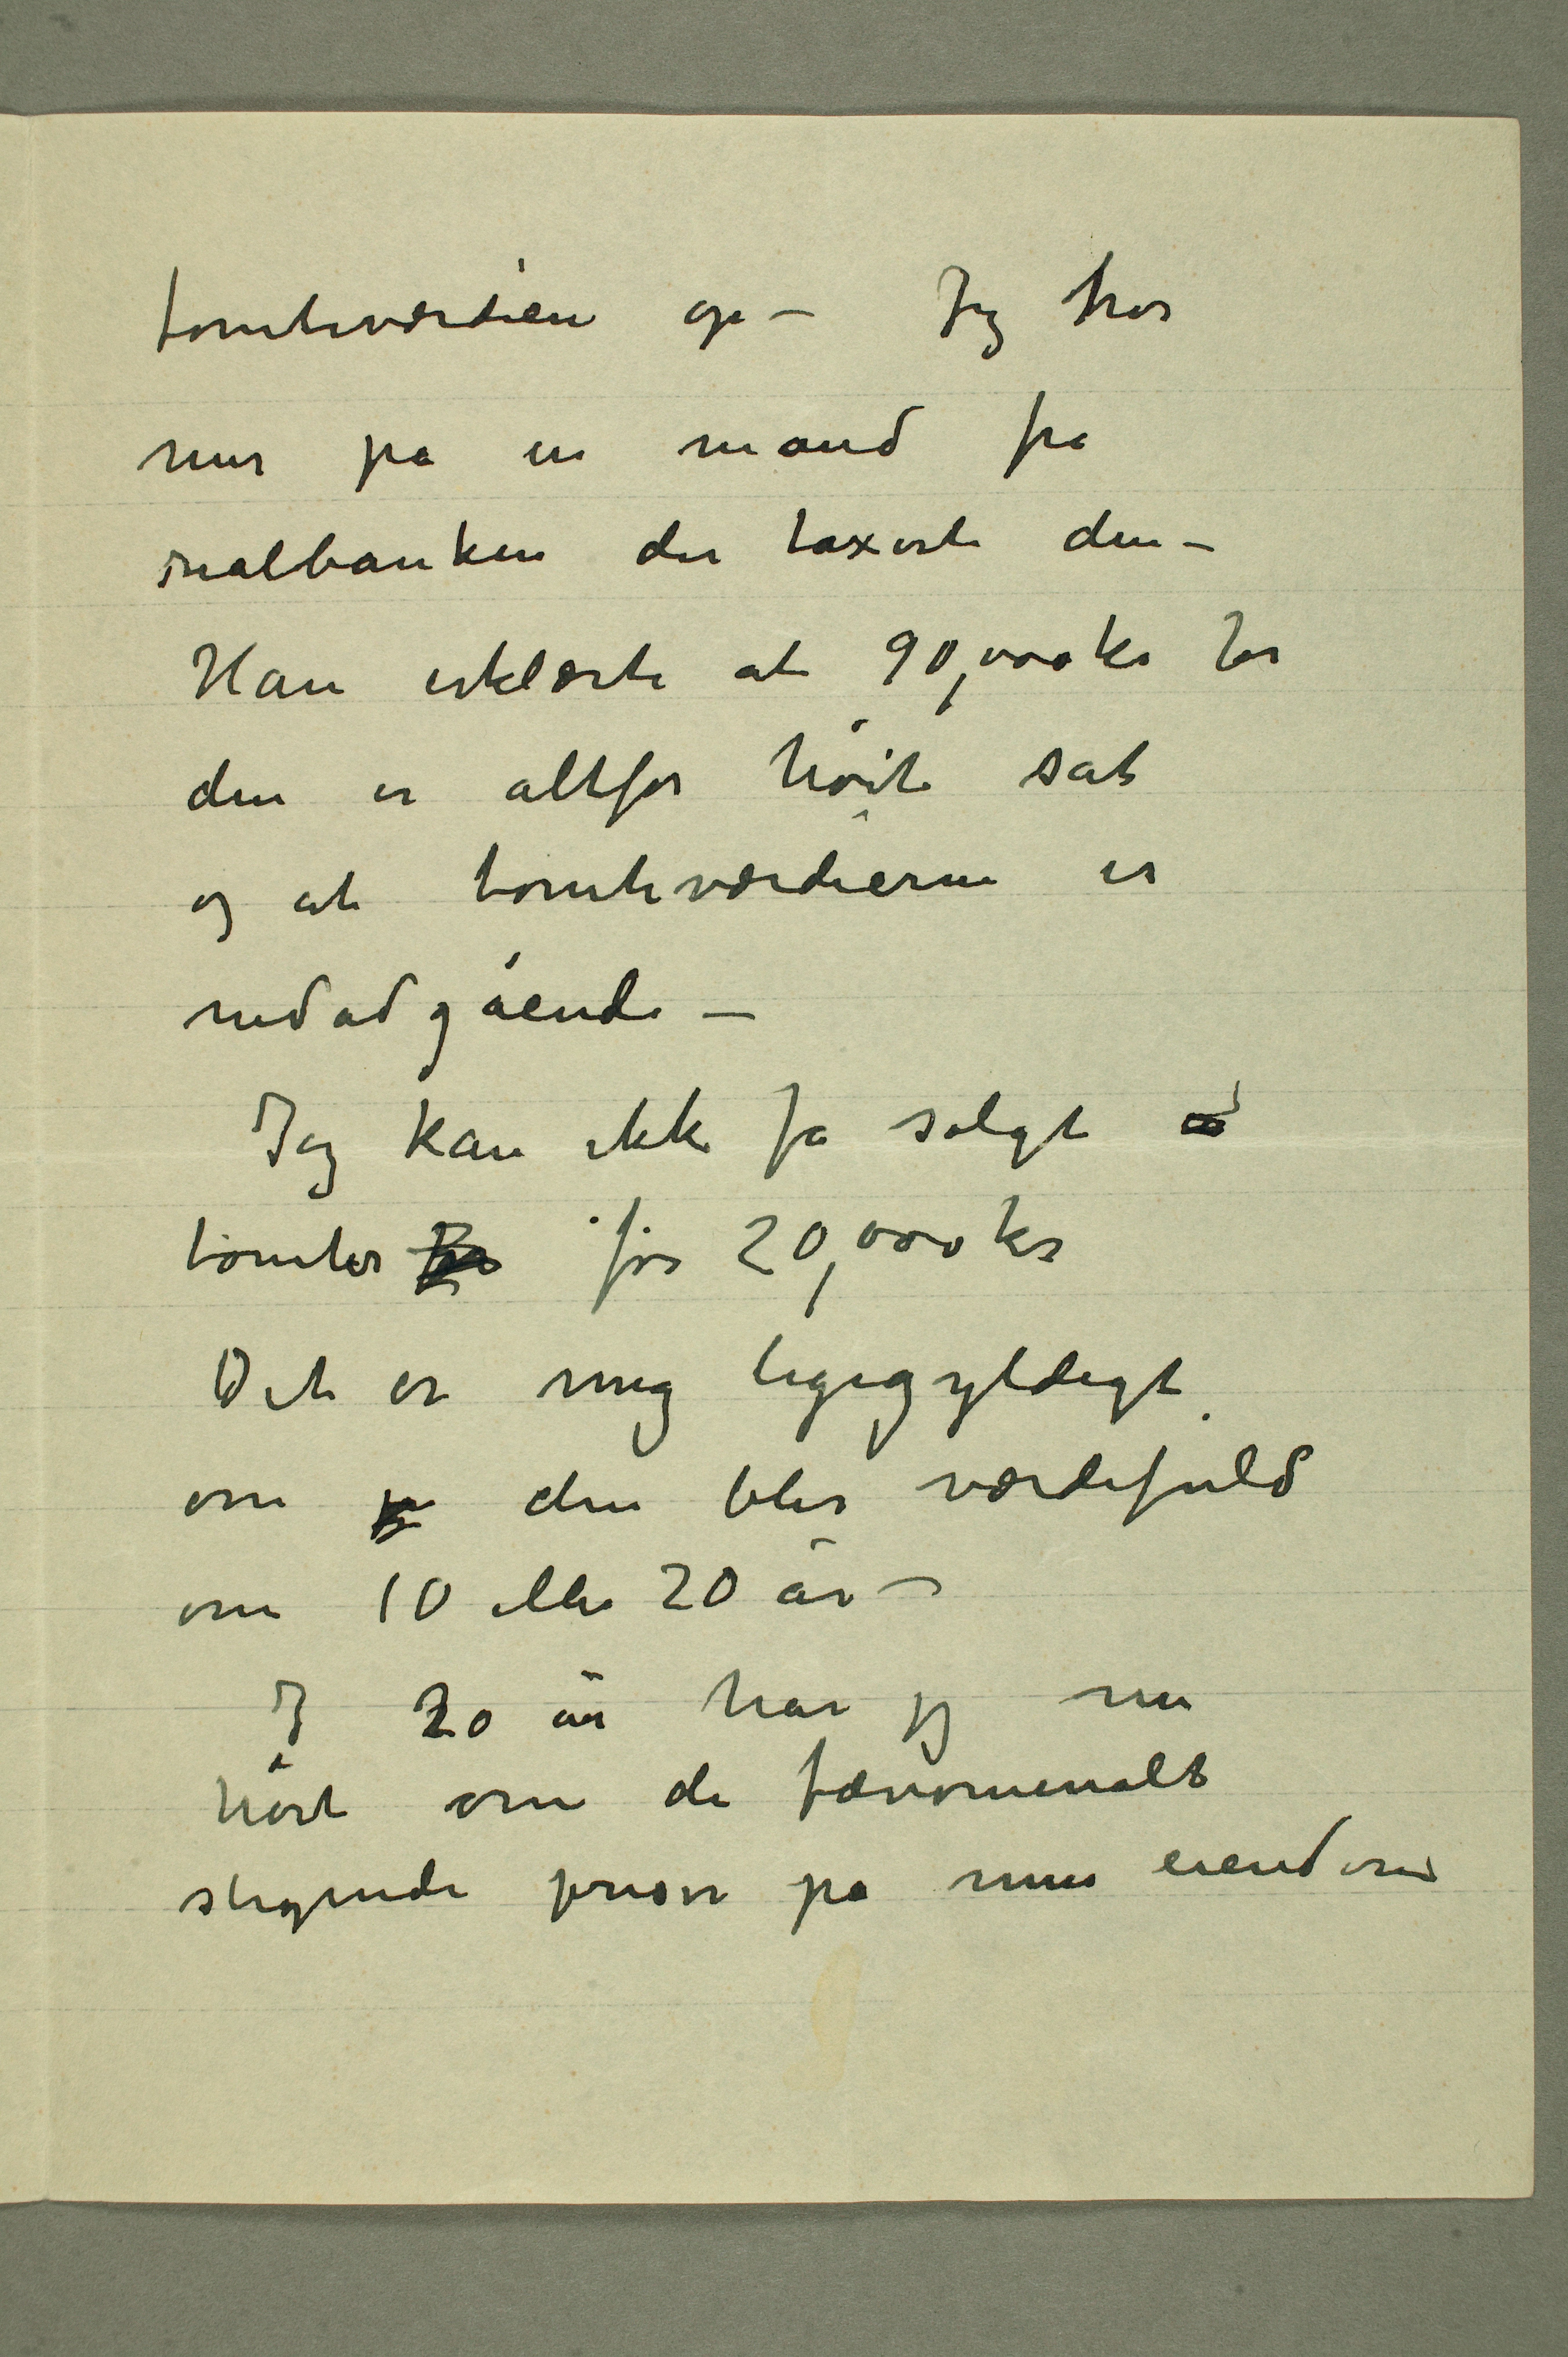 tomteværdien op – Jeg tror
mer på en mand fra
realbanken der taxerte den –
Han erklærte at 90,000 kr for
den er altfor høit sat
og at tomteværdierne er
nedadgående –
Jeg kan ikke få solgt
tomter for 20,000 kr
Det er mig ligegyldigt
om den blir værdifuld
om 10 eller 20 år –
I 20 år har jeg nu
hørt om de fænomenalt
stigende priser på mine eiendom